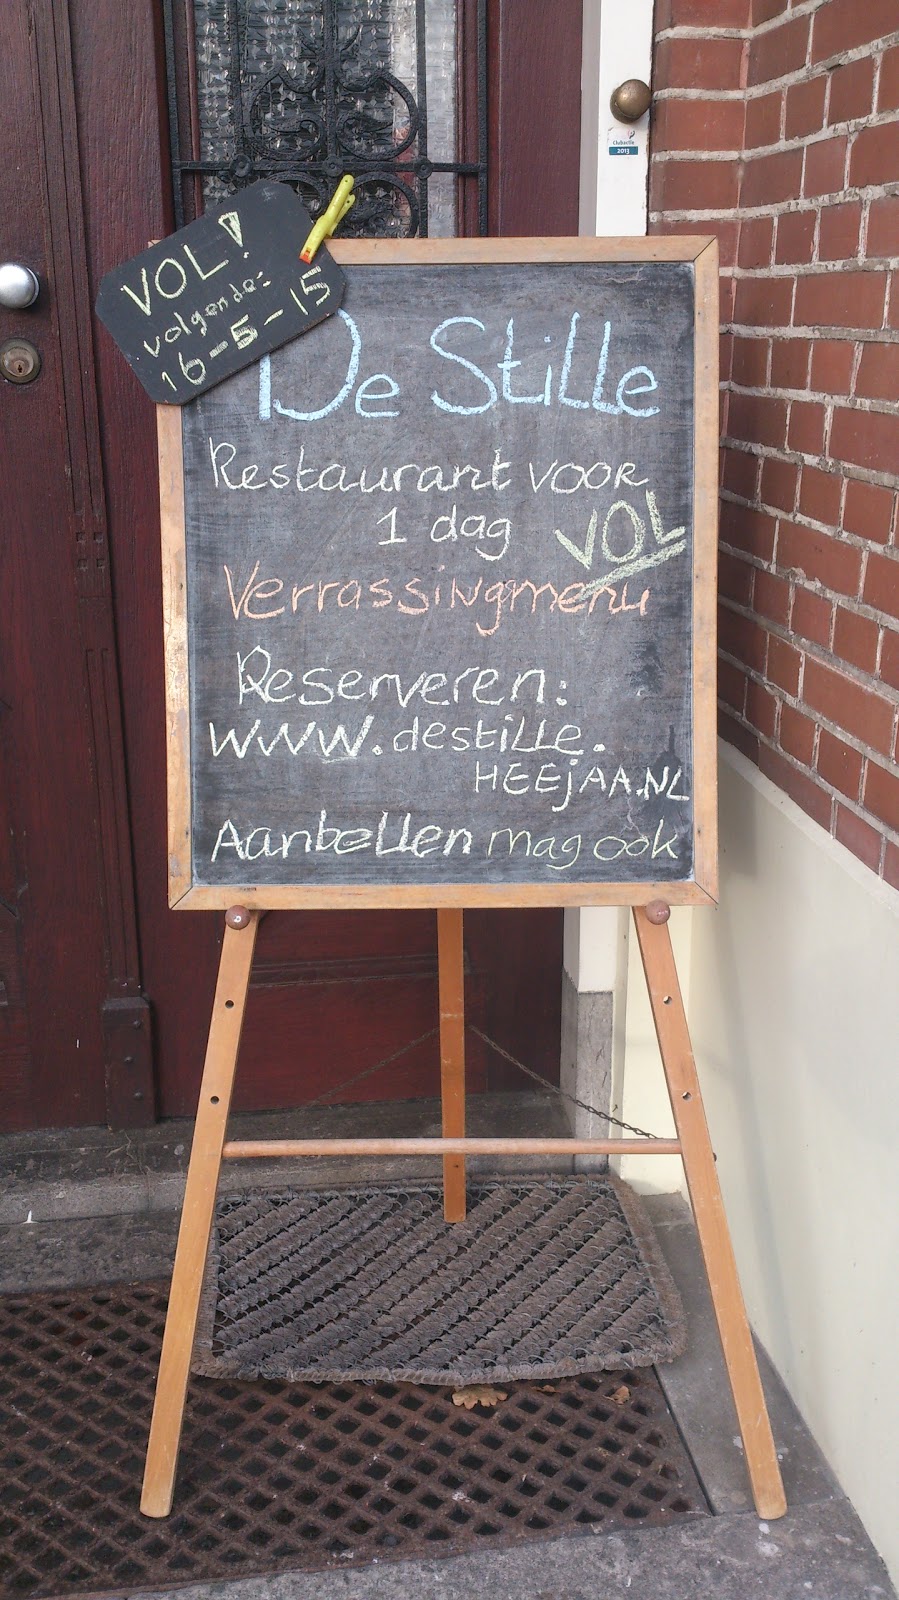 VOL!
volgende:
16-5-15
De Stille
Restaurant VOOR
1 dag
VOL
Verrassingmenu
Reserveren:
www.destille.
HEEjAA.NL
Aanbellen mag ook
Clubactie
2013